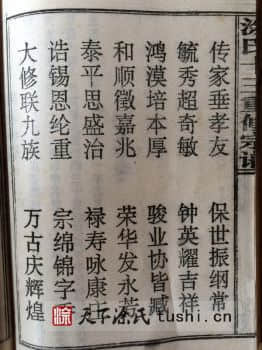 重修宗谱
传家垂孝友 保世振纲常
毓秀超奇敏 钟英耀吉祥
鸿漠培本厚 骏业协皆臧
和顺徵嘉兆 荣华发永芳
泰平思盛治 禄寿咏康
诰锡恩纶重 宗绵锦字
大修联九族 万古庆辉煌
涂 天下涂氏 tushi.cn